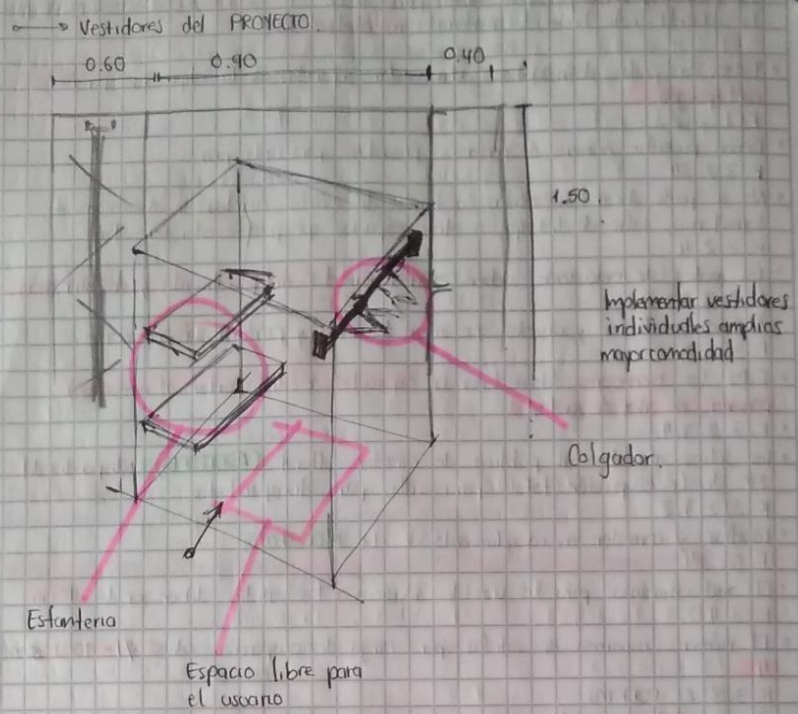 Vestidores del PROYECTO.
0.60 0.90 0.40
1.50
Implementar vestidores
individuales amplias
mayor comodidad
Colgador.
Estanteria
Espacio libre para
el usuario